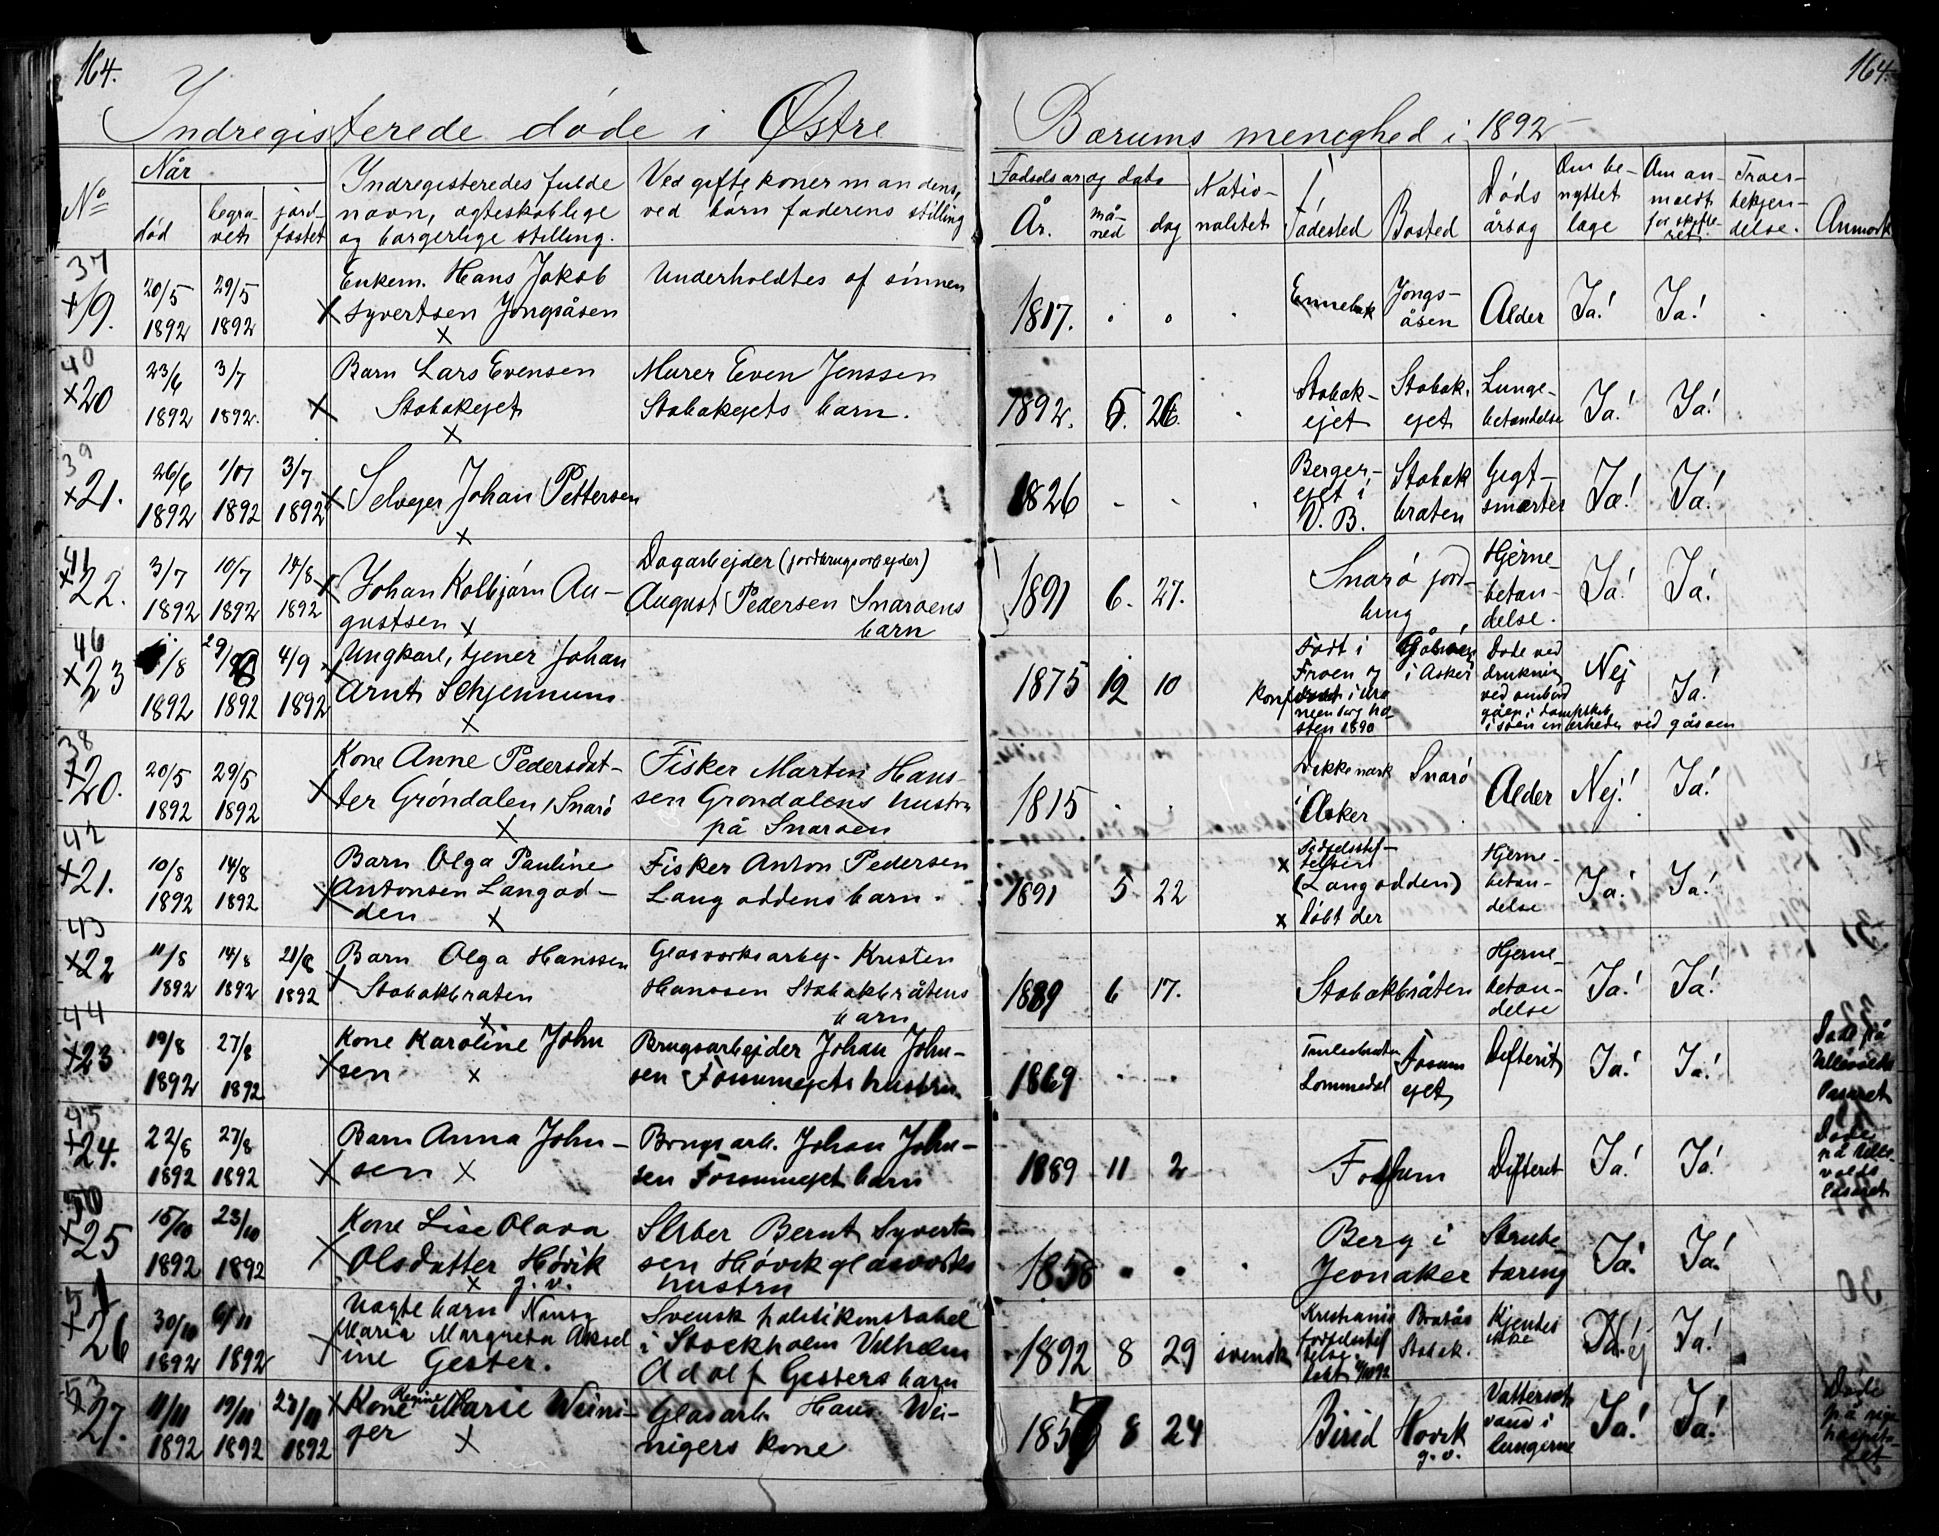 164. 164.
Indregisterede døde i Østre Bærums menighed i 1892
Når
Fødselsår og dato
No død begravet jordfæstet Indregisteredes fulde navn, ægteskablige og borgerlige stilling. Ved gifte koner mandens, ved børn faderens stilling År. måned dag Nationalitet Fødested Bosted Dødsårsag Om benyttet læge Om anmeldt for skifteret Troesbekjendelse. Anmerk
37 × 19. 20/5 1892 29/5 1892 × Enkem. Hans Jakob Syvertsen Jongsåsen × Underholdtes af sønnen 1817. Ennebak Jongsåsen Alder Ja! Ja!
40 × 20 23/6 1892 3/7 1892. × Barn Lars Evensen Stabækejet × Murer Even Jenssen Stabækejets barn. 1892. 5. 26. Stabækejet Stabækejet Lungebetændelse Ja! Ja!
39 × 21. 26/6 1892 1/07 1892 3/7 1892 × Selvejer Johan Pettersen × 1826 Bergerejet i V. B. Stabækbråten Gigtsmerter Ja! Ja!
41 × 22. 3/7 1892 10/7 1892 14/8 1892 × Johan Kolbjørn Augustsen × Dagarbejder (jordbrugsarbejder) August Pedersen Snarøens barn 1891 6. 27. Snarø jordbrug Hjernebetændelse. Ja! Ja!
46 × 23 /8 1892 29/8 1892 4/9 1892 × Ungkarl, tjener Johan Arnt Schjennum × 1875 12 10 Født i Froen og konf i 1890 i Asker Døde ved drukning ved ombord i dampskib ved gåsøen Nej Ja!
38 × 20. 20/5 1892 29/5 1892 × Kone Anne Pedersdatter Grøndalen, Snarø × Fisker Martin Hanssen Grøndalens hustru på Snarøen 1815 i Asker Snarø Alder Nej! Ja!
42 × 21. 10/8 1892 14/8 1892 × Barn Olga Pauline Antonsen Langodden × Fisker Anton Pedersen Langoddens barn. 1891 5 22 × Fødselsstiftelsen (Langodden) × døbt der Hjernebetændelse Ja! Ja!
43 × 22 11/8 1892 14/8 1892 21/8 1892 × Barn Olga Hanssen Stabækbråten × Glasverksarbej. Kristen Hanssen Stabækbråtens barn 1889 6 17. Stabækbråten Hjernebetændelse Ja! Ja!
44 × 23 19/8 1892 27/8 1892 × Kone Karoline Johnsen × Brugsarbejder Johan Johnsen Fossumejets hustru. 1869 Lommedal Fossumejet Difterit Ja! Ja! Døde på Ullevolds lasaret
45 × 24. 22/8 1892 27/8 1892 × Barn Anna Johnsen × Brugsarb. Johan Johnsen Fossumejet barn 1889 11 2 Fossum Difterit Ja! Ja! Døde på Ullevolds lasaret
50 × 25 15/10 1892 23/10 1892 × Kone Lise Olava Olsdatter Høvik g. v. × Sliber Bernt Syvertsen Høvik glasverks hustru 1858 Berg i Jevnaker Strubetæring Ja! Ja!
51 × 26 30/10 1892 6/11 1892 × Uægte barn Nansy Maria Margreta Akseline Gester. Svensk politikonstabel i Stockholm Vilhelm Adolf Gesters barn 1892 8 29 svensk Kristiania fødselsstiftelse. Døbt 4/10 92 Bråtås Stabæk. Kjendes ikke Nej Ja!
53 × 27. 11/11 1892 19/11 1892 27/11 1892 × Kone Regine Marie Weiniger × Glasarb. Hans Weinigers kone 1857 8 24 Birid Høvik g. v. Vattersot vand i lungerne Ja! Ja! Døde på rigshospitalet